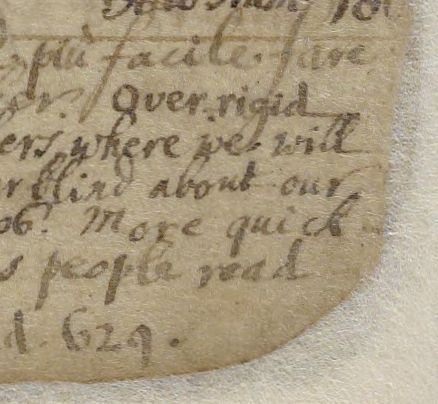 più facile. fare
Over rigid
ers, where we will
blind about our
06. More quick
s people read
d. 629.